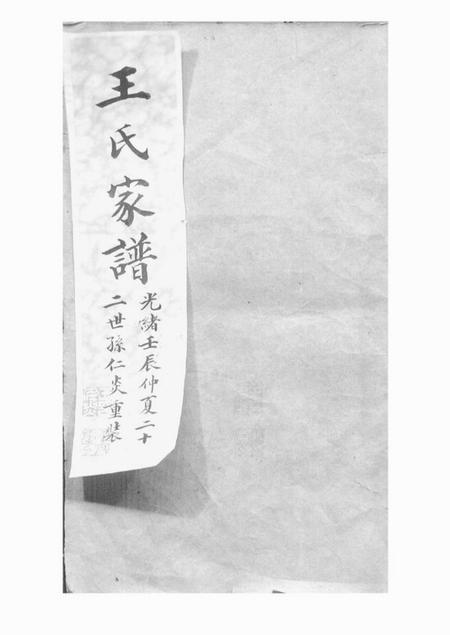 王氏家譜
光緒壬辰仲夏二十
二世孫仁炎重裝